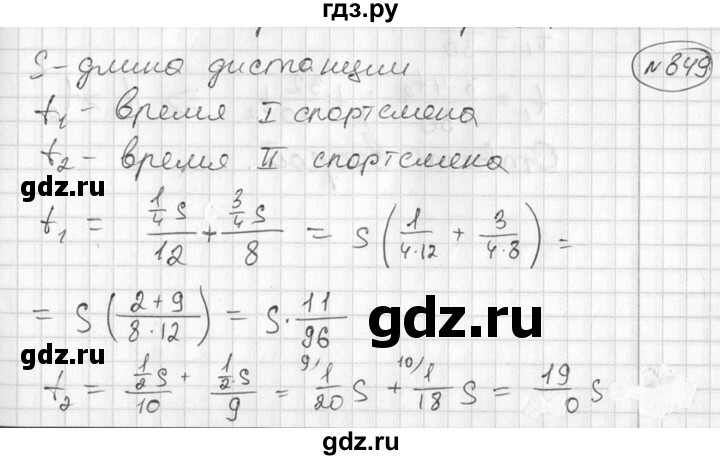 гдз.ру
№849
S - длина дистанции
t₁ - время I спортсмена
t₂ - время II спортсмена
gdz.ru
gdz.ru
t₁ = (1/4 S)/12 + (3/4 S)/8 = S (1/(4·12) + 3/(4·8)) =
= S ((2+9)/(8·12)) = S · 11/96
gdz.ru
t₂ = (1/2 S + 1/2 S)/(10 9) = 9/ 1/20 S + 10/ 1/18 S = 19/0 S
gdz.ru